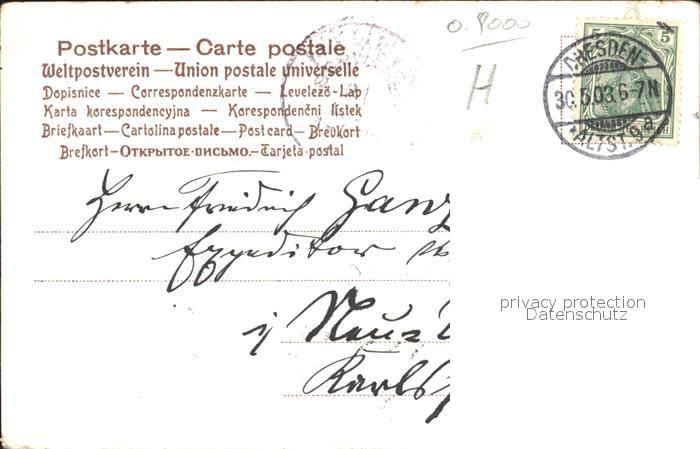 o. 9000
H
5 5
DRESDEN-
30.6.03.6-7N
*ALTST.9.a.
Postkarte — Carte postale
Weltpostverein — Union postale universelle
Dopisnice — Correspondenzkarte — Levelező-Lap
Karta korespondencyjna — Korespondenční lístek
Briefkaart — Cartolina postale — Post card — Brevkort
Brefkort — Открытое-письмо. — Tarjeta postal
Herrn Friedrich Ganz
Expeditor
Neu-
Karls
privacy protection
Datenschutz